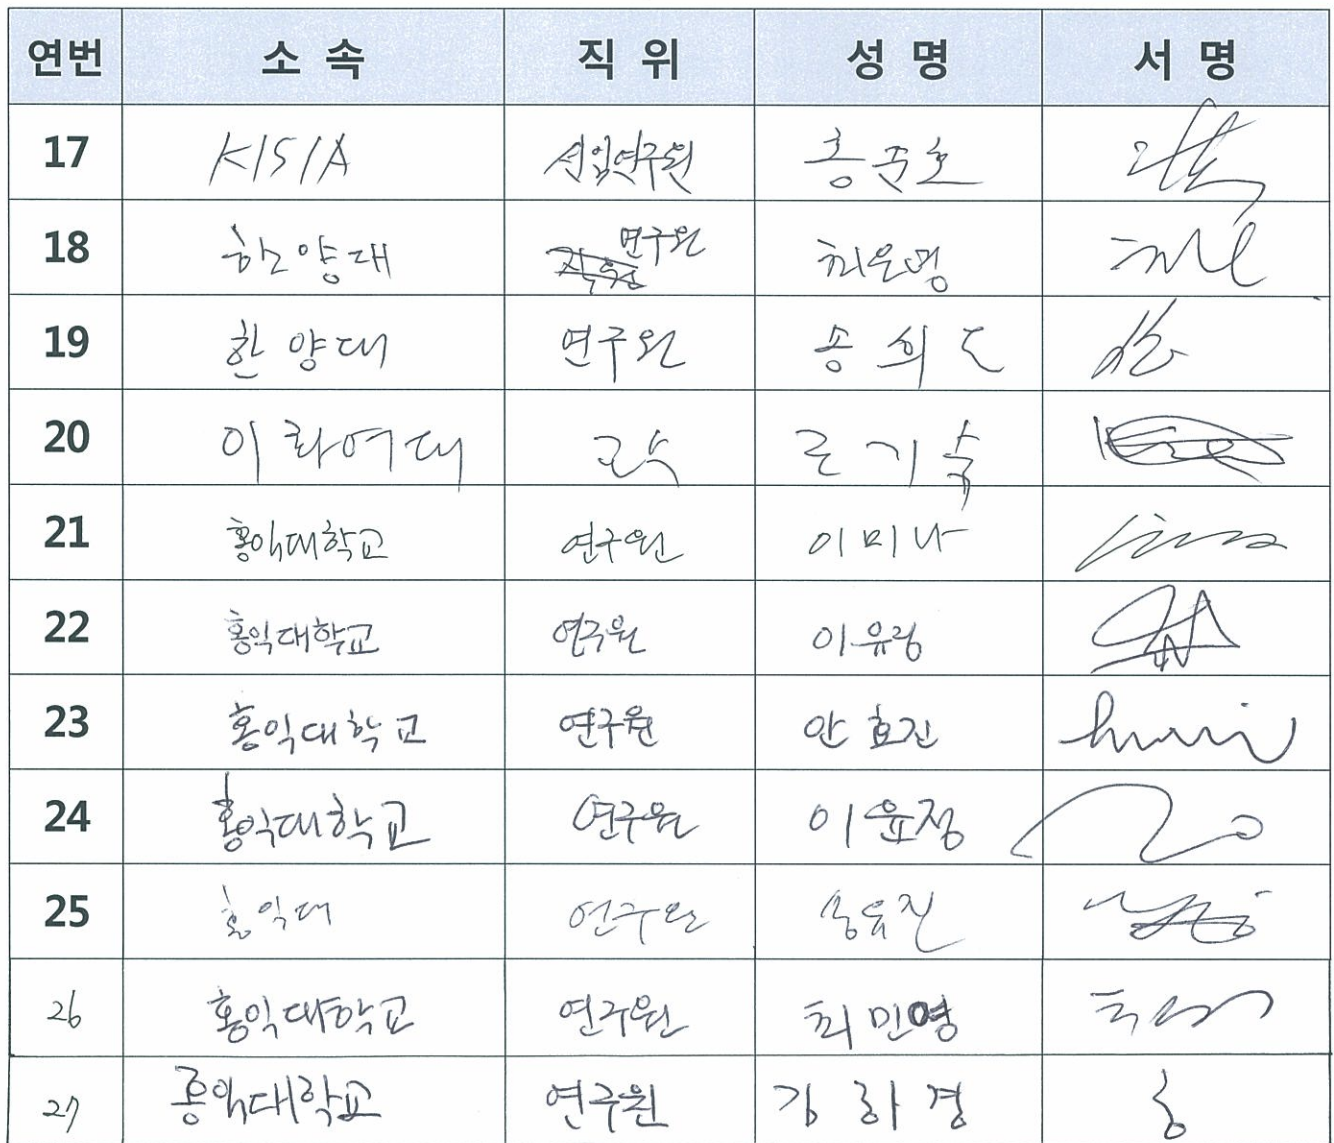 연번 소속 직위 성명 서명
17 KISIA 선임연구원 홍준호
18 한양대 연구원 최운영
19 한양대 연구원 송희도
20 이화여대 교수 기숙
21 홍익대학교 연구원 이미나
22 홍익대학교 연구원 이유림
23 홍익대학교 연구원 안효진
24 홍익대학교 연구원 이윤정
25 홍익대 연구원 송유진
26 홍익대학교 연구원 최민영
27 홍익대학교 연구원 김하경